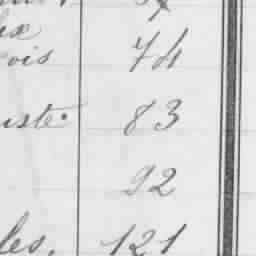 ois 74
uste. 83
92
les. 121